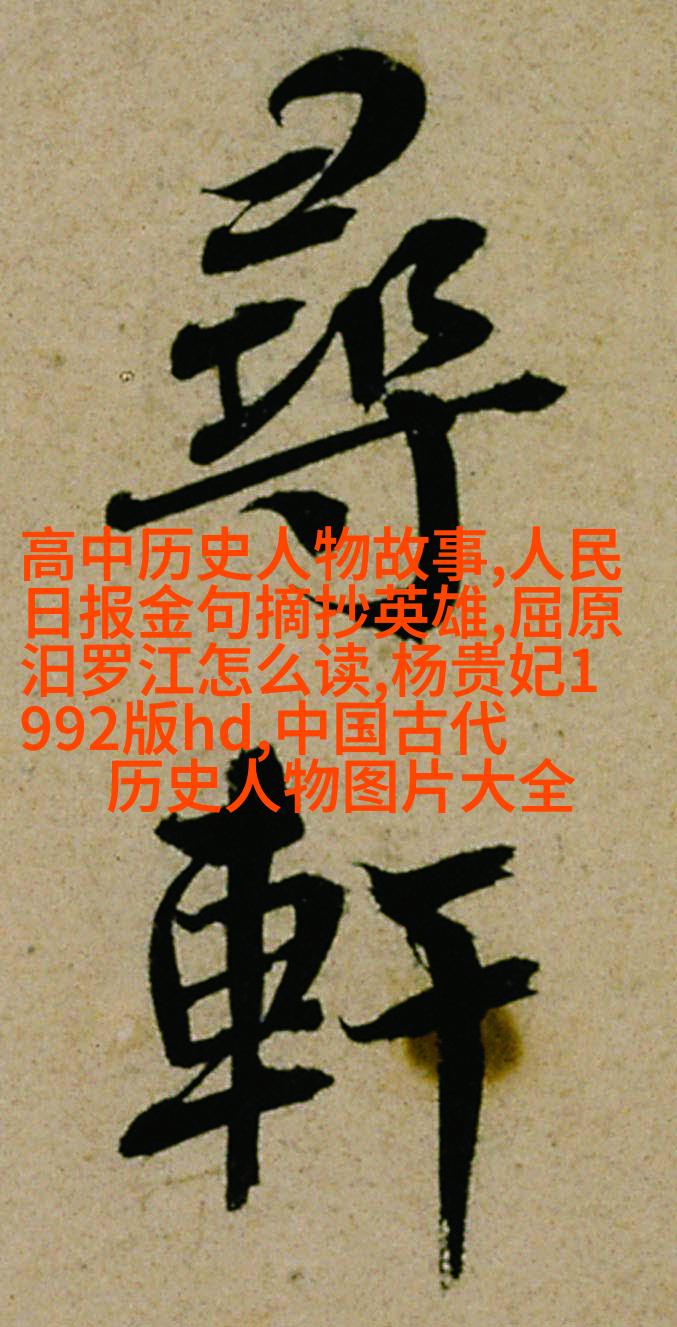 尋
軒
高中历史人物故事,人民
日报金句摘抄英雄,屈原
汨罗江怎么读,杨贵妃1
992版hd,中国古代
历史人物图片大全